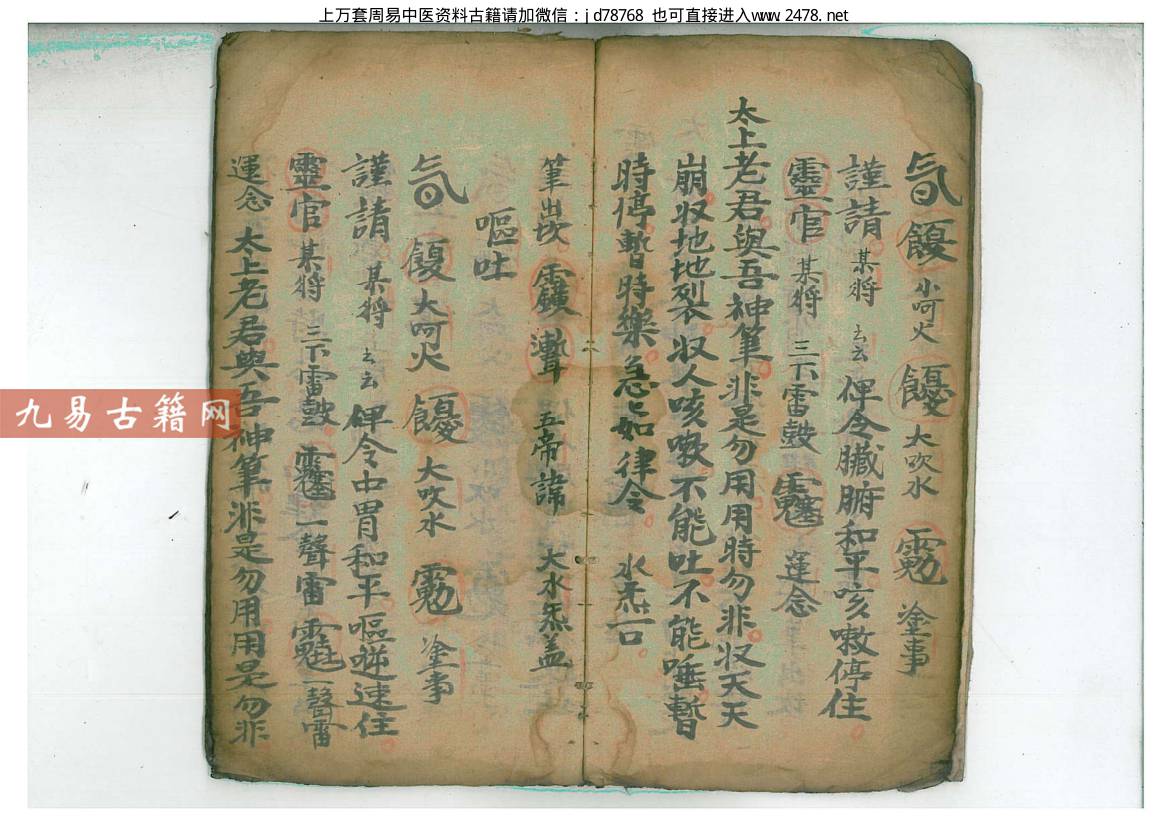 上万套周易中医资料古籍请加微信：jd78768 也可直接进入www.2478.net
小呵火 大吹水 塗事
謹請 某将 云云 俾令臟腑和平咳嗽停住
靈官 某将 三下雷鼓 運念
太上老君與吾神筆非是勿用用時勿非収天天
崩収地地裂収人咳嗽不能吐不能唾暫
時停暫時樂急急如律令 水炁一口
筆 五帝諱 大水炁盖
嘔吐
大呵火 大吹水 塗事
謹請 某将 云云 俾令中胃和平嘔逆速住
靈官 某将 三下雷鼓 一聲雷 一聲雷
運念 太上老君與吾神筆非是勿用用是勿非
九易古籍网